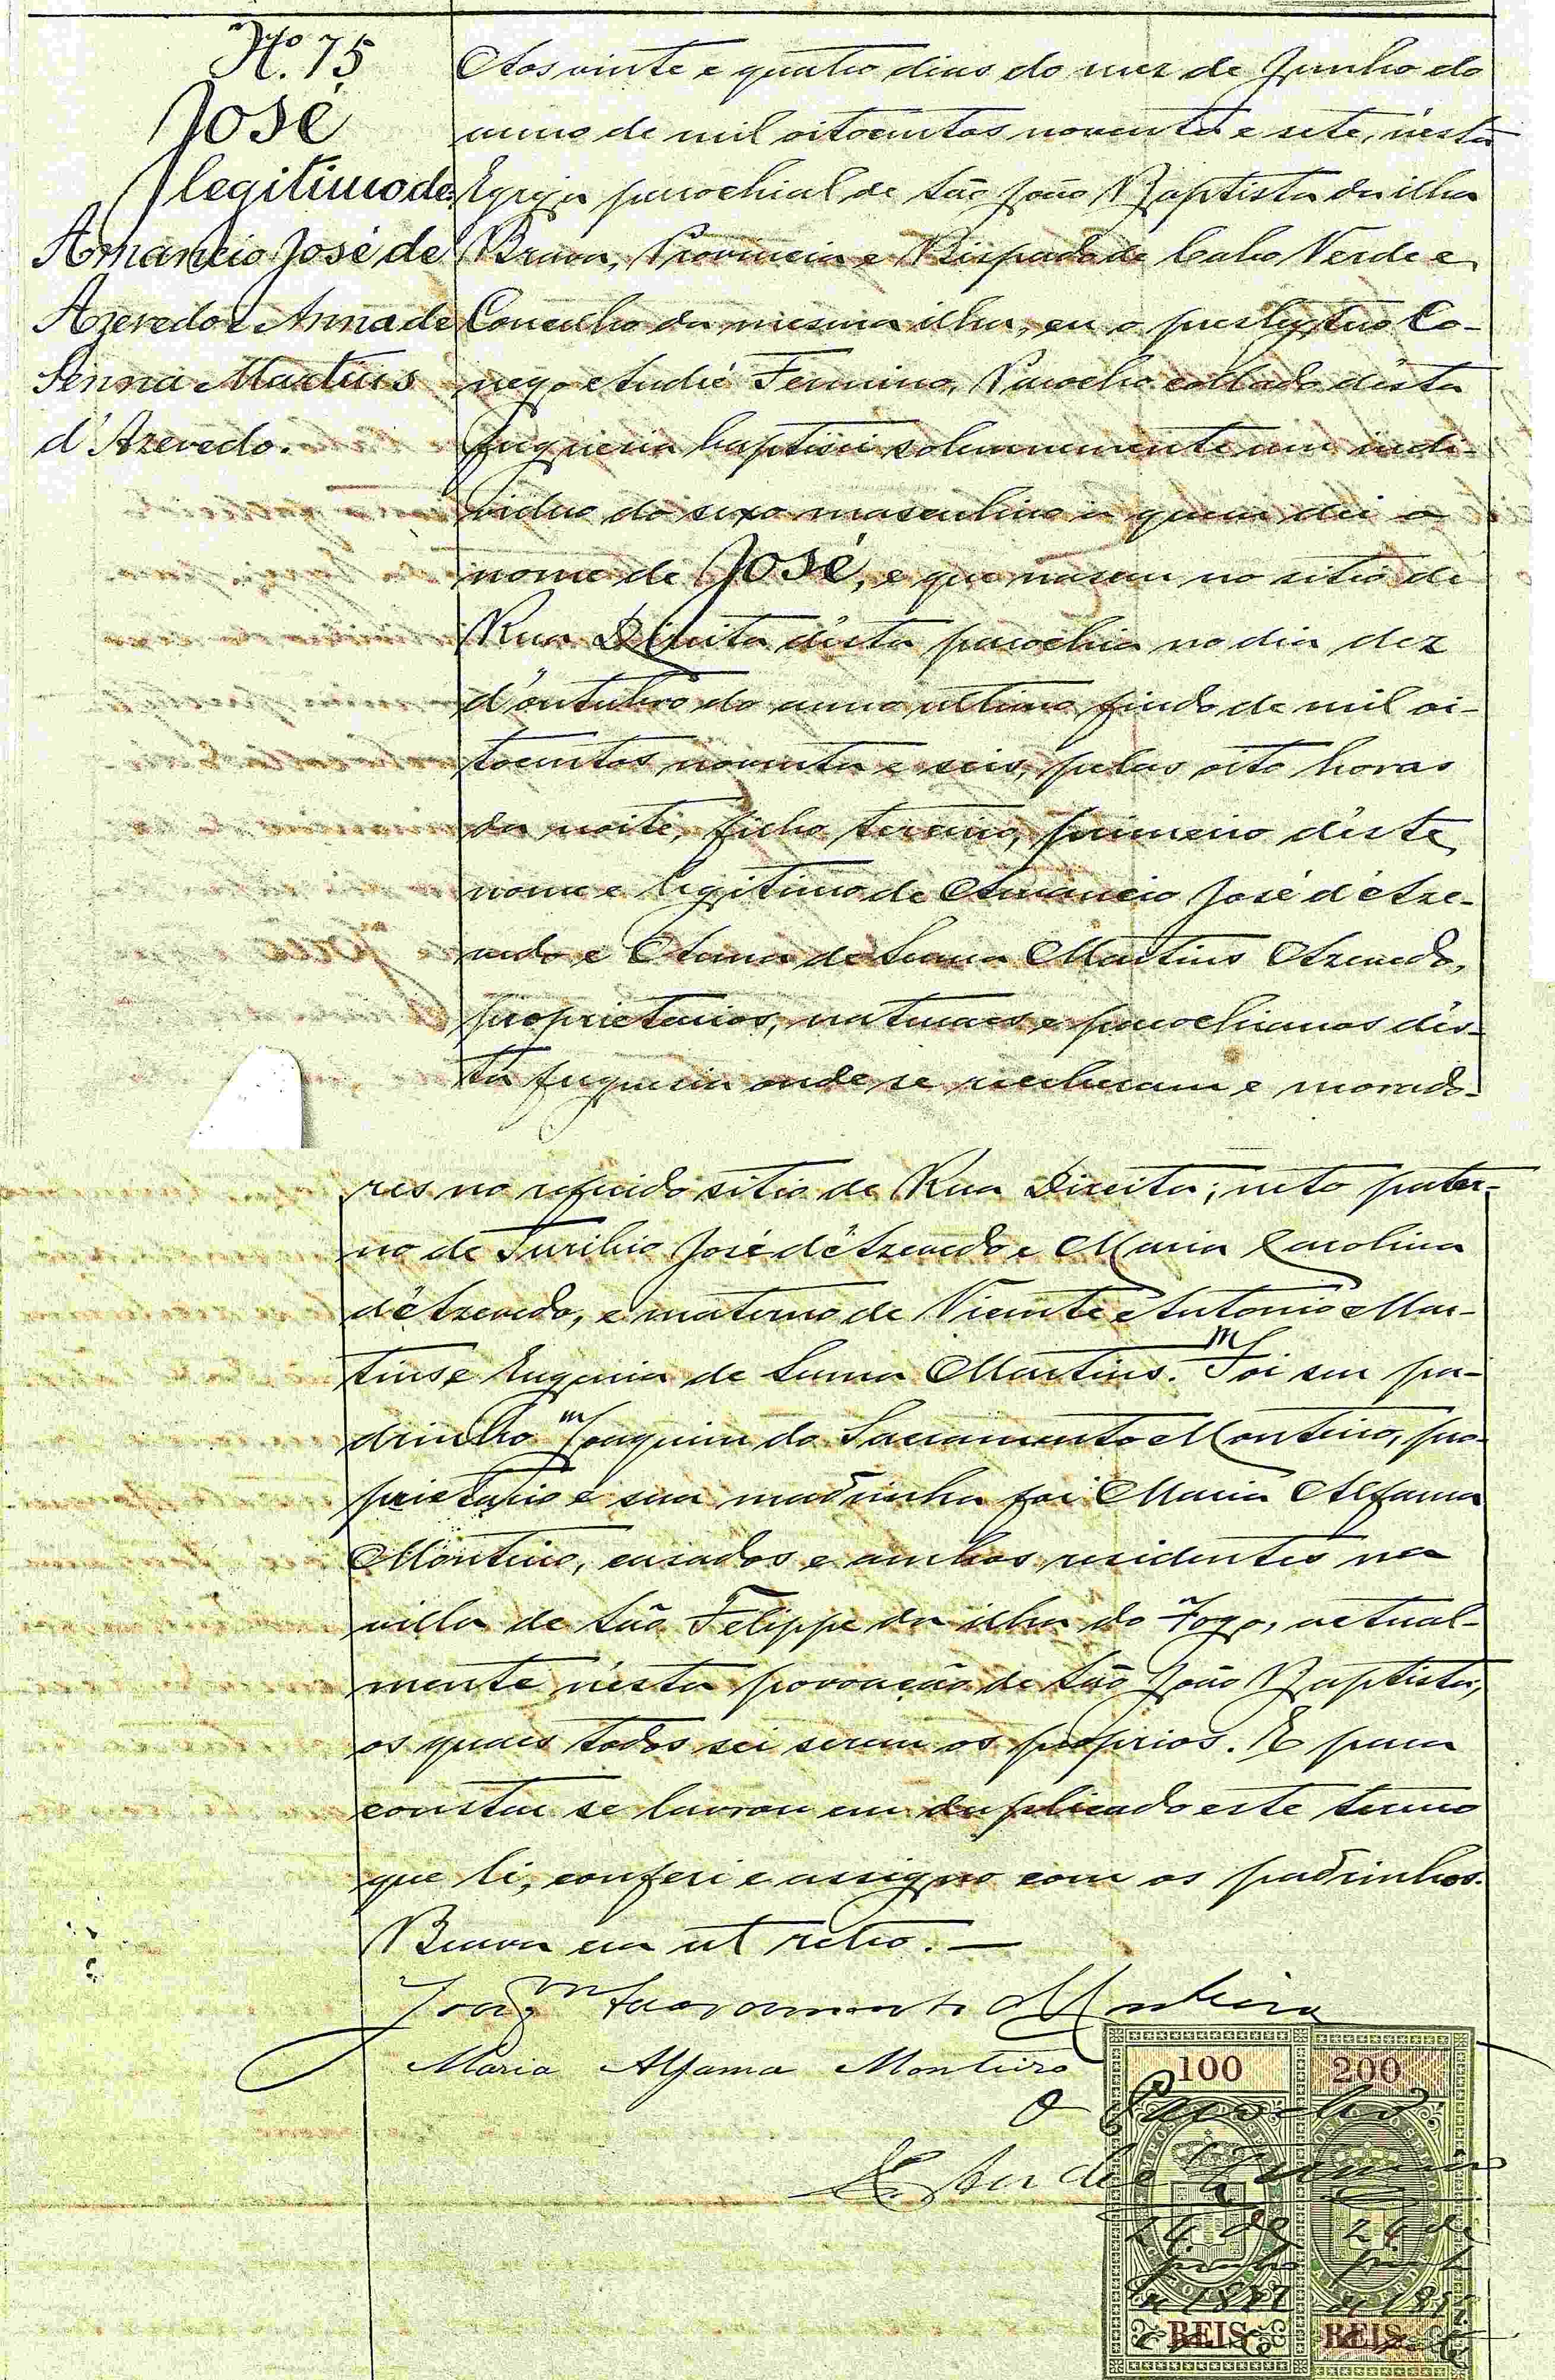 Nº. 75
José
legitimo de
Amancio José de
Azevedo e Anna de
Senna Martins
d'Azevedo.
Aos vinte e quatro dias do mez de Junho do
anno de mil oitocentos noventa e sete, n'esta
Egreja parochial de São João Baptista da ilha
Brava, Provincia e Bispado de Cabo Verde e
Concelho da mesma ilha, eu o presbytero Co-
nego André Firmino, Parocho collado d'esta
freguesia baptisei solemnemente um indi-
viduo do sexo masculino a quem dei o
nome de José, e que nasceu no sitio de
Rua Direita d'esta parochia no dia dez
d'outubro do anno ultimo findo de mil oi-
tocentos noventa e seis, pelas oito horas
da noite, filho terceiro, primeiro d'este
nome e legitimo de Amancio José d'Aze-
vedo e Anna de Senna Martins Azevedo,
proprietarios, naturaes e parochianos d'es-
ta freguesia onde se receberam e morado-
res no referido sitio de Rua Direita; neto pater-
no de Turibio José d'Azevedo e Maria Carolina
d'Azevedo, e materno de Vicente Antonio Mar-
tins e Eugenia de Senna Martins. Foi seu pa-
drinho Joaquim do Sacramento Monteiro, pro-
prietario e sua madrinha foi Maria Alfama
Monteiro, casados e ambos residentes na
villa de São Felippe da ilha do Fogo, actual-
mente n'esta povoação de São João Baptista,
os quaes todos sei serem os proprios. E para
constar se lavrou em duplicado este termo
que li, conferi e assigno com os padrinhos.
Brava era ut retro. —
Joaqm Sacramento Monteiro
Maria Alfama Monteiro
O Parocho
C. André Firmino
100 200
24 de 24 de
junho junho
de 1897 de 1897
REIS REIS